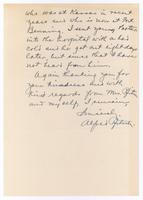 who was at Kansas in recent
years and who is now at Fort
Benning. I sent young Porter
into the hospital with a bad
cold and he got out eight days
later, but since that I have
not heard from him.
Again thanking you for
your kindness and with
kind regards from Mrs.
and myself, I remain
Sincerely
Alfred